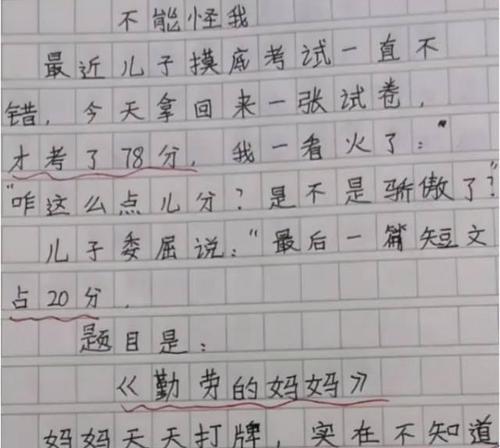 不能怪我
最近儿子摸底考试一直不
错，今天拿回来一张试卷，
才考了78分，我一看火了："
"咋这么点儿分？是不是骄傲了？"
儿子委屈说："最后一篇短文
占20分．
题目是：
《勤劳的妈妈》
妈妈天天打牌，实在不知道